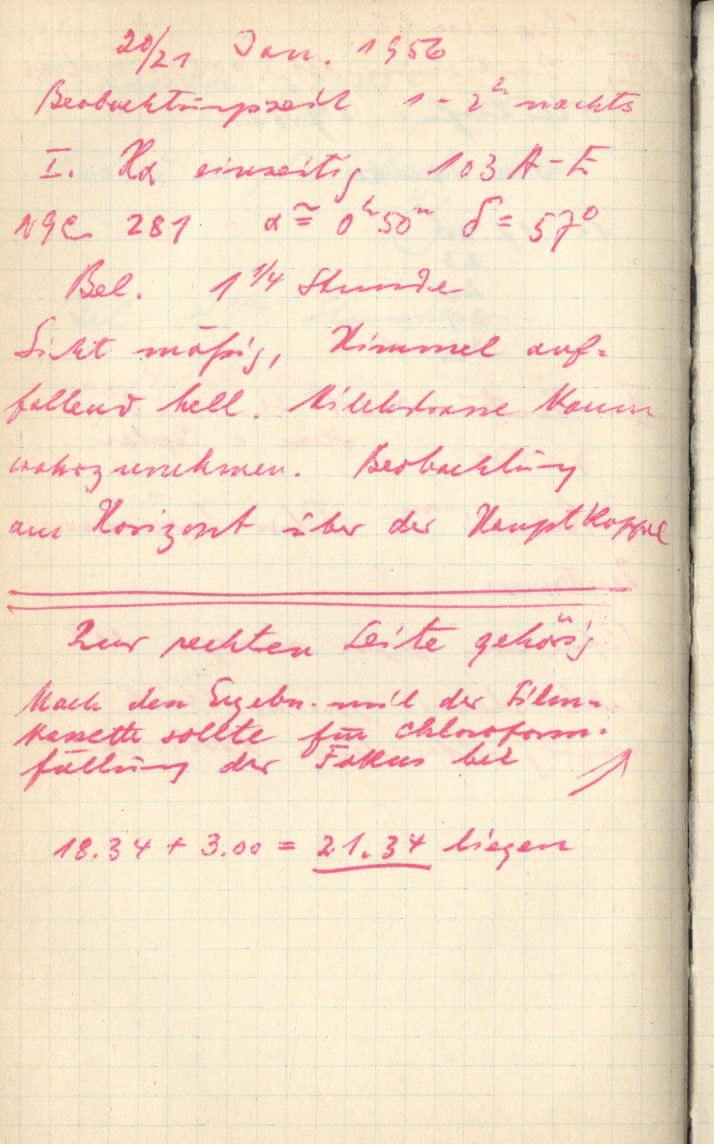 20/21 Jan. 1956
Beobachtungszeit 1 - 2ʰ nachts
I. Hα einseitig 103 A-E
NGC 281 α ≅ 0ʰ50ᵐ δ = 57⁰
Bel. 1 1/4 Stunde
Sicht mäßig, Himmel auf-
fallend hell. Milchstrasse kaum
wahrzunehmen. Beobachtung
am Horizont über der Hauptkuppel
Zur rechten Seite gehörig
Nach den Ergebn. mit der Film-
kassette sollte für Chloroform-
füllung der Fokus bei
18.34 + 3.00 = 21.34 liegen